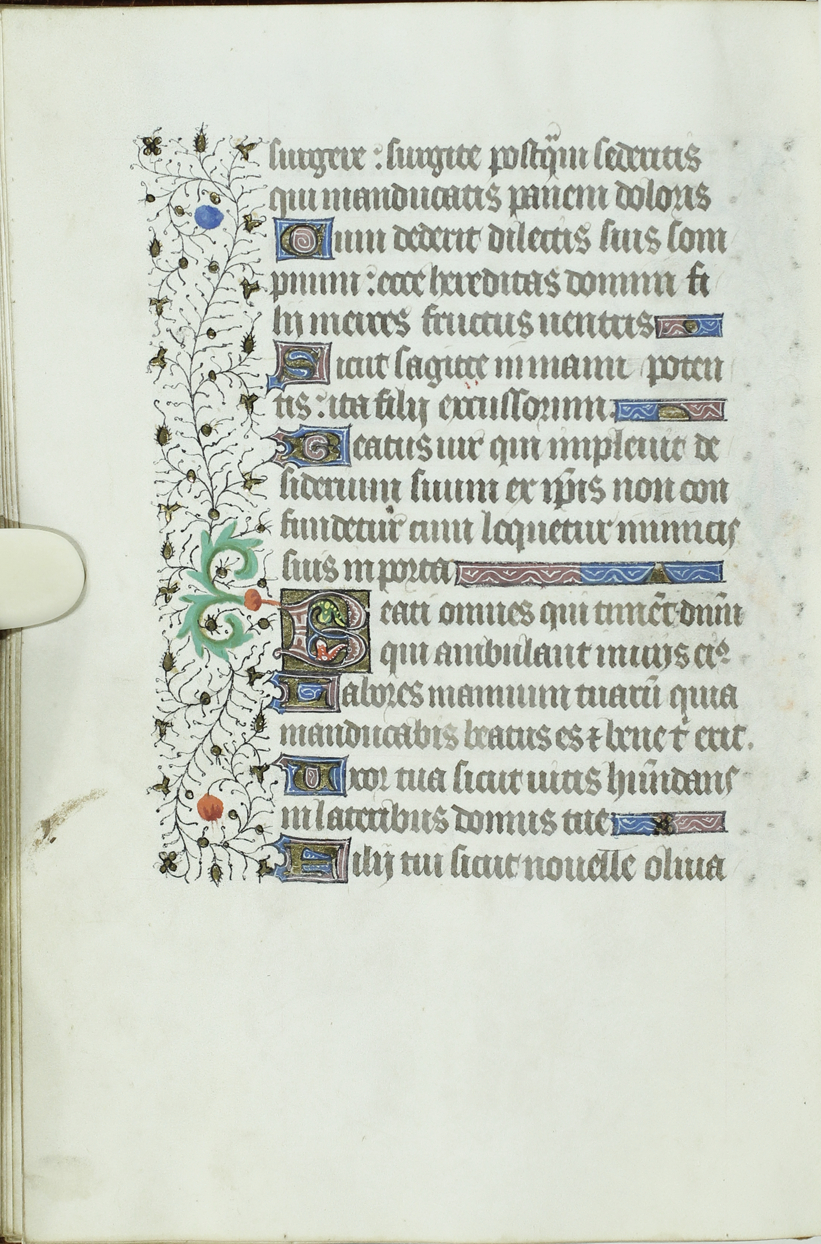 surgere : surgite postq̃m sederitis
qui manducatis panem doloris
Cum dederit dilectis suis som
pnum : ecce hereditas domini fi
lij merces fructus uentris
Sicut sagitte in manu poten
tis : ita filij excussorum.
Beatus uir qui impleuit de
siderium suum ex ip̃is non con
fundetur cum loquetur inimicis
suis in porta
Beati omnes qui timẽt dñm
qui ambulant in uijs eiꝰ
Labores manuum tuarũ quia
manducabis beatus es ⁊ bene t̃ erit.
Uxor tua sicut uitis hũndans
in lateribus domus tue
Filij tui sicut nouelle oliua